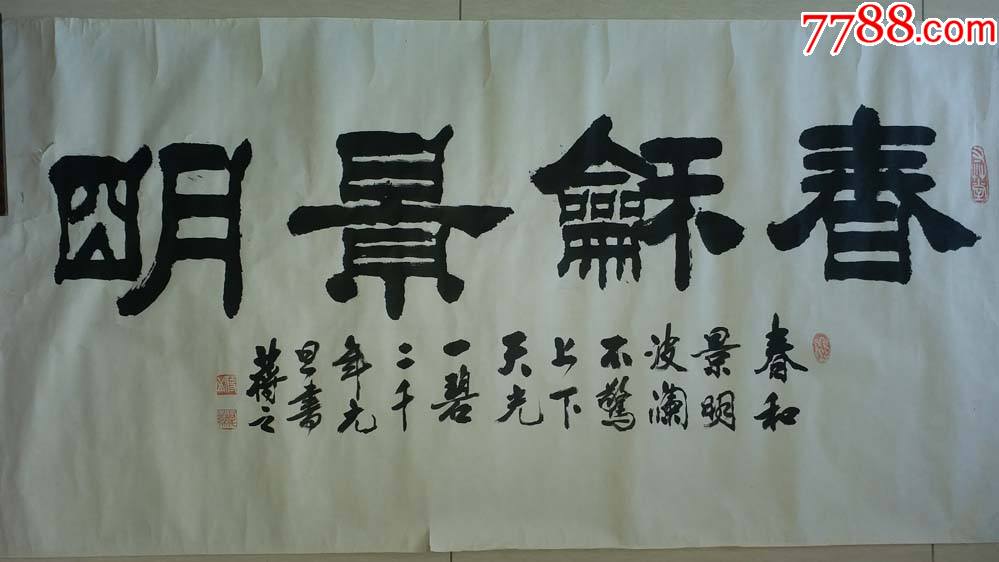 7788.com
春龢景朙
春和
景明
波澜
不驚
上下
天光
一碧
二千
年元
旦書
蔣之